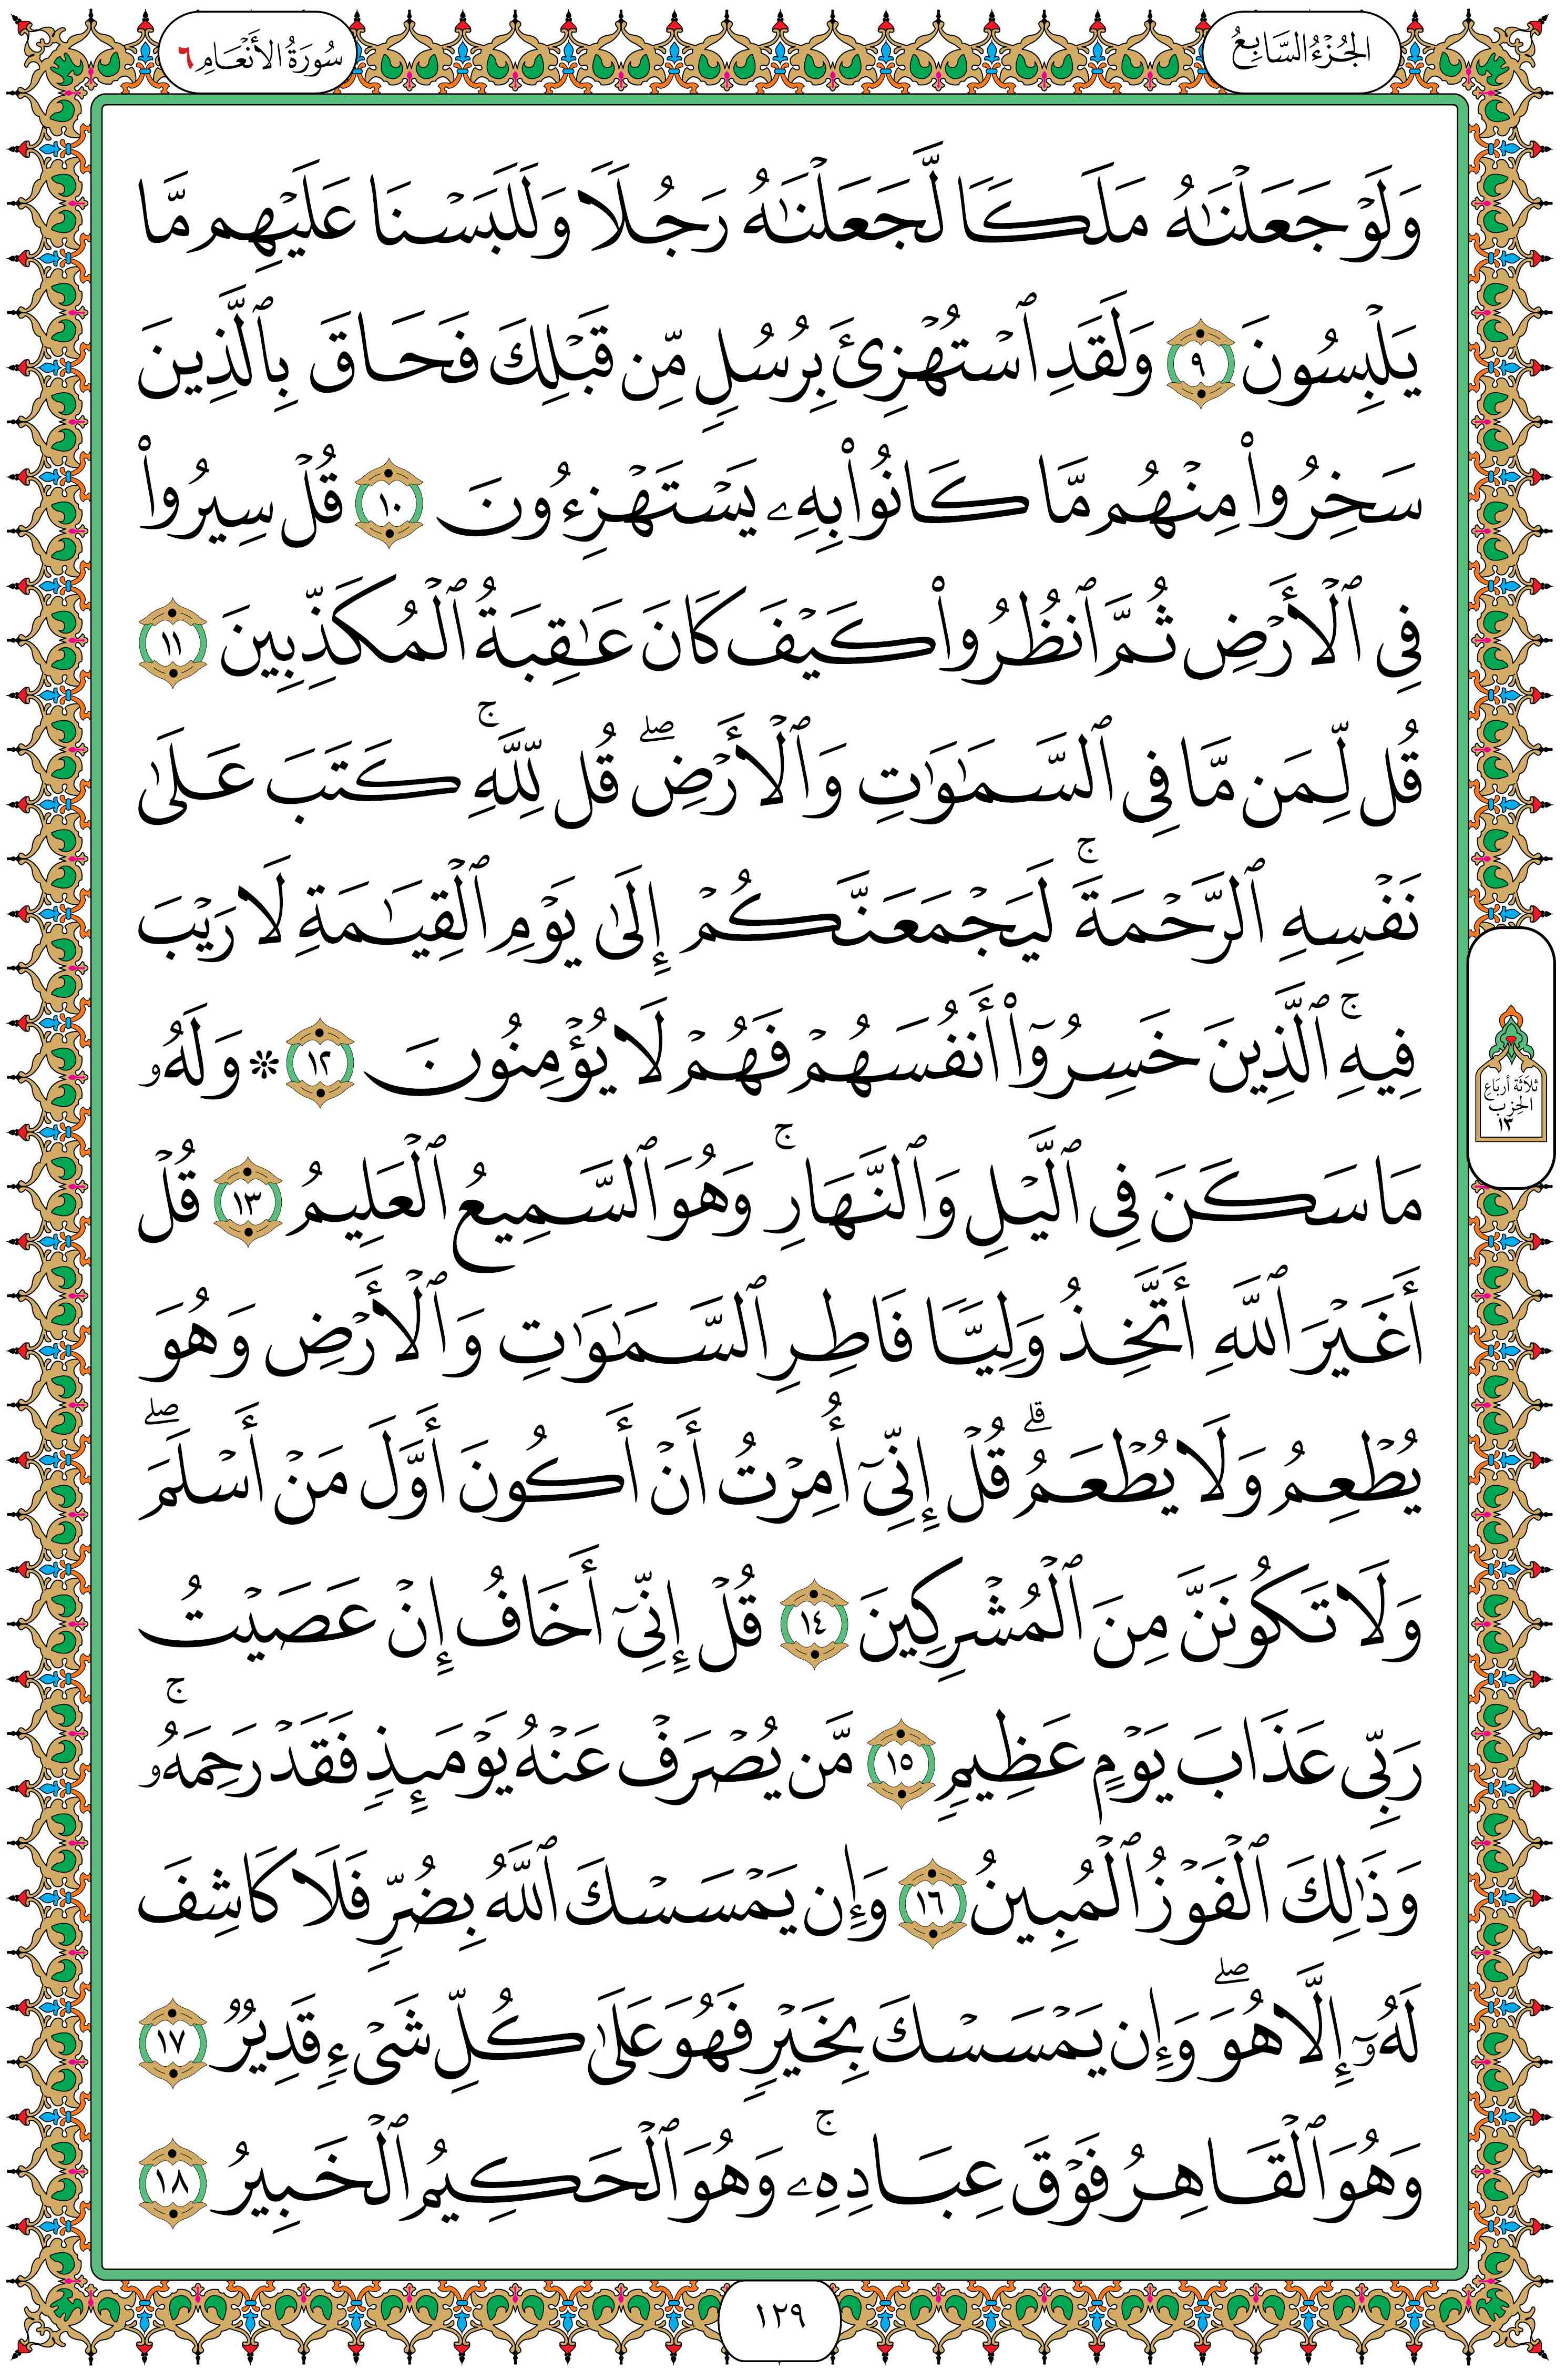 الجُزْءُ السَّابِعُ
سُورَةُ الأَنْعَامِ ٦
وَلَوْ جَعَلْنَٰهُ مَلَكًا لَّجَعَلْنَٰهُ رَجُلًا وَلَلَبَسْنَا عَلَيْهِم مَّا
يَلْبِسُونَ ٩ وَلَقَدِ ٱسْتُهْزِئَ بِرُسُلٍ مِّن قَبْلِكَ فَحَاقَ بِٱلَّذِينَ
سَخِرُوا۟ مِنْهُم مَّا كَانُوا۟ بِهِۦ يَسْتَهْزِءُونَ ١٠ قُلْ سِيرُوا۟
فِى ٱلْأَرْضِ ثُمَّ ٱنظُرُوا۟ كَيْفَ كَانَ عَٰقِبَةُ ٱلْمُكَذِّبِينَ ١١
قُل لِّمَن مَّا فِى ٱلسَّمَٰوَٰتِ وَٱلْأَرْضِ ۖ قُل لِّلَّهِ ۚ كَتَبَ عَلَىٰ
نَفْسِهِ ٱلرَّحْمَةَ ۚ لَيَجْمَعَنَّكُمْ إِلَىٰ يَوْمِ ٱلْقِيَٰمَةِ لَا رَيْبَ
فِيهِ ۚ ٱلَّذِينَ خَسِرُوٓا۟ أَنفُسَهُمْ فَهُمْ لَا يُؤْمِنُونَ ١٢ ۞ وَلَهُۥ
مَا سَكَنَ فِى ٱلَّيْلِ وَٱلنَّهَارِ ۚ وَهُوَ ٱلسَّمِيعُ ٱلْعَلِيمُ ١٣ قُلْ
أَغَيْرَ ٱللَّهِ أَتَّخِذُ وَلِيًّا فَاطِرِ ٱلسَّمَٰوَٰتِ وَٱلْأَرْضِ وَهُوَ
يُطْعِمُ وَلَا يُطْعَمُ ۗ قُلْ إِنِّىٓ أُمِرْتُ أَنْ أَكُونَ أَوَّلَ مَنْ أَسْلَمَ ۖ
وَلَا تَكُونَنَّ مِنَ ٱلْمُشْرِكِينَ ١٤ قُلْ إِنِّىٓ أَخَافُ إِنْ عَصَيْتُ
رَبِّى عَذَابَ يَوْمٍ عَظِيمٍ ١٥ مَّن يُصْرَفْ عَنْهُ يَوْمَئِذٍ فَقَدْ رَحِمَهُۥ ۚ
وَذَٰلِكَ ٱلْفَوْزُ ٱلْمُبِينُ ١٦ وَإِن يَمْسَسْكَ ٱللَّهُ بِضُرٍّ فَلَا كَاشِفَ
لَهُۥٓ إِلَّا هُوَ ۖ وَإِن يَمْسَسْكَ بِخَيْرٍ فَهُوَ عَلَىٰ كُلِّ شَىْءٍ قَدِيرٌ ١٧
وَهُوَ ٱلْقَاهِرُ فَوْقَ عِبَادِهِۦ ۚ وَهُوَ ٱلْحَكِيمُ ٱلْخَبِيرُ ١٨
ثلاثة أرباع
الحزب
١٣
١٢٩